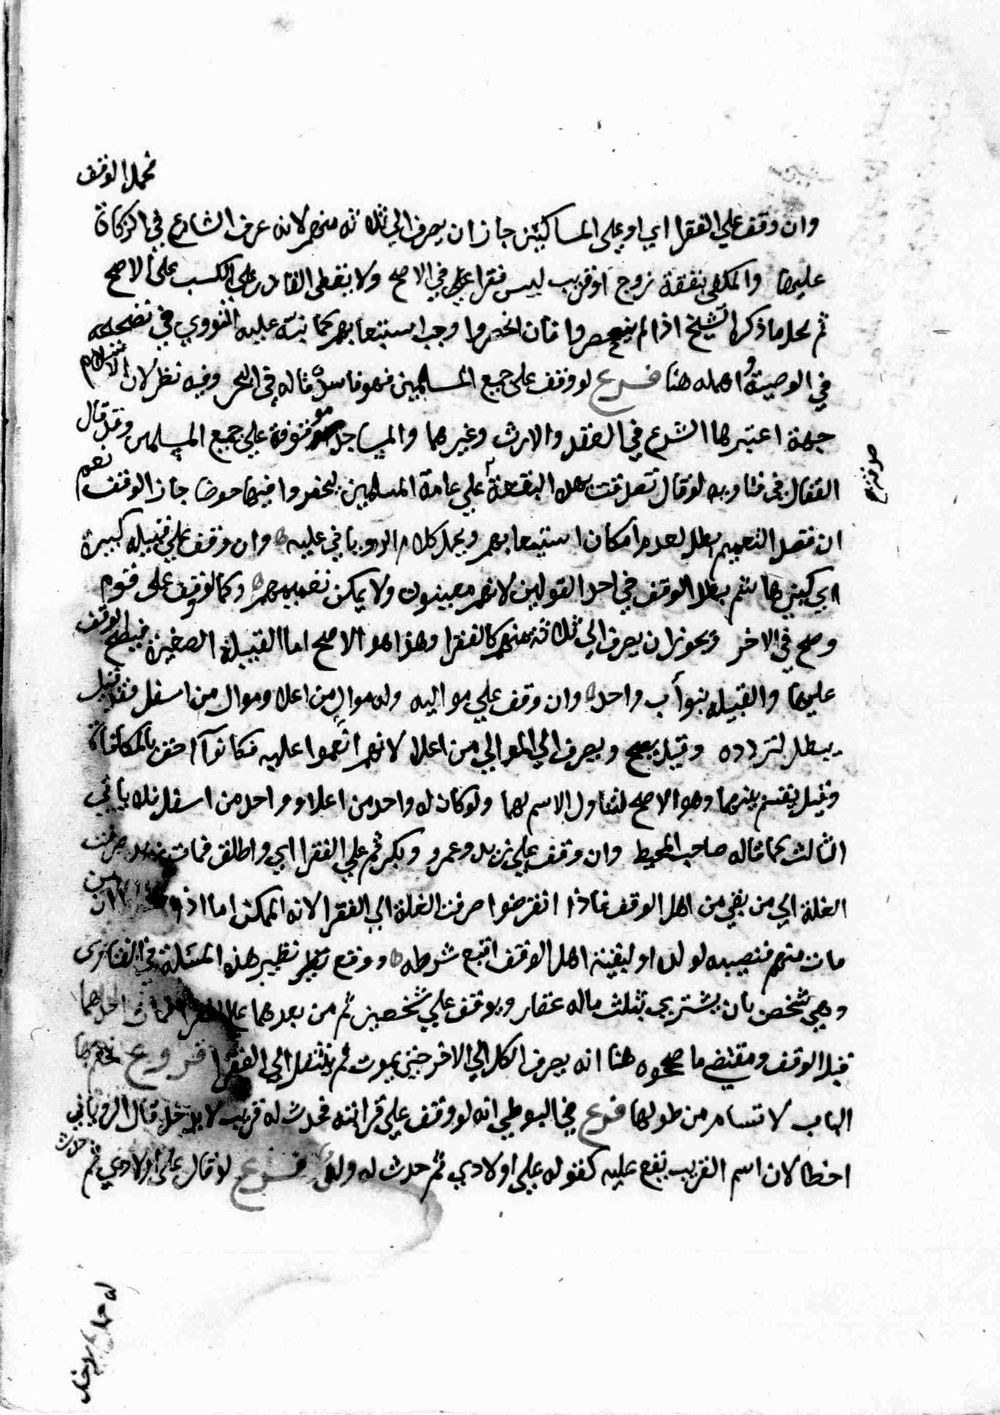 فيحمل الوقف
وان وقف علي الفقرا اي او علي المساكين جاز ان يصرف الي ثلاثة منهم لانه عرف الشارع في الزكاة
عليها والمكفي بنفقة زوج او قريب ليس فقيرا في الاصح ولا يعطى القادر علي الكسب على الاصح
ثم محل ما ذكر الشيخ اذا لم ينحصروا فان انحصروا وجب استيعابهم كما نبه عليه النووي في تصحيحه
في الوصية واهمله هنا فرع لو وقف على جميع المسلمين فهو فاسد قاله في البحر وفيه نظر لان الاسلام
جهة اعتبرها الشرع في العقل والارث وغيرهما والمساجد موقوفة على جميع المسلمين وقد قال
القفال في فتاويه لو قال تصدقت بهذه البقعة علي عامة المسلمين ليحفروا فيها حوضا جاز الوقف نعم
ان قصد التعميم بطل لعدم امكان استيعابهم ويحمل كلام الروياني عليه وان وقف علي قبيلة كبيرة
اي كبني هاشم بطل الوقف في احد القولين لانهم معينون ولا يمكن تعميمهم وكما لو وقف على قوم
وصح في الاخر ويجوز ان يصرف الي ثلاثة منهم كالفقرا وهذا هو الاصح اما القبيلة الصغيرة فيصح الوقف
عليها والقبيلة بنو أب واحد وان وقف علي مواليه وله موال من اعلا وموال من اسفل فقد قيل
يبطل لتردده وقيل يصح ويصرف الي الموالي من اعلا لانهم انعموا عليه فكانوا احق بالمكافاة
وقيل يقسم بينهما وهو الاصح لتناول الاسم لهما ولو كان له واحد من اعلا وواحد من اسفل فلا ياتي
الثالث كما قاله صاحب المحيط وان وقف علي زيد وعمرو وبكر ثم علي الفقرا اي واطلق فمات زيد صرفت
الغلة الي من بقي من اهل الوقف فاذا انقرضوا صرفت الغلة الي الفقرا لانه الممكن اما اذا ان من
مات منهم فنصيبه لولده او لبقية اهل الوقف اتبع شرطه ووقع نظير هذه المسئلة في الفتاوى
وهي شخص بان يشترى بثلث ماله عقار ويوقف علي شخصين ثم من بعدهما علي الفقرا فمات احدهما
قبل الوقف ومقتضى ما صححوه هنا انه يصرف الكل الي الاخر حتى يموت ثم ينتقل الي الفقرا فروع نختم بها
الباب لا تسام من طولها فرع في البويطي انه لو وقف علي قرابته فحدث له قريب لا يدخل قال الروياني
اخطا لان اسم القريب يقع عليه كقوله علي اولادي ثم حدث له ولد فرع لو قال علي اولادي ثم حدث
له حمل يدخل